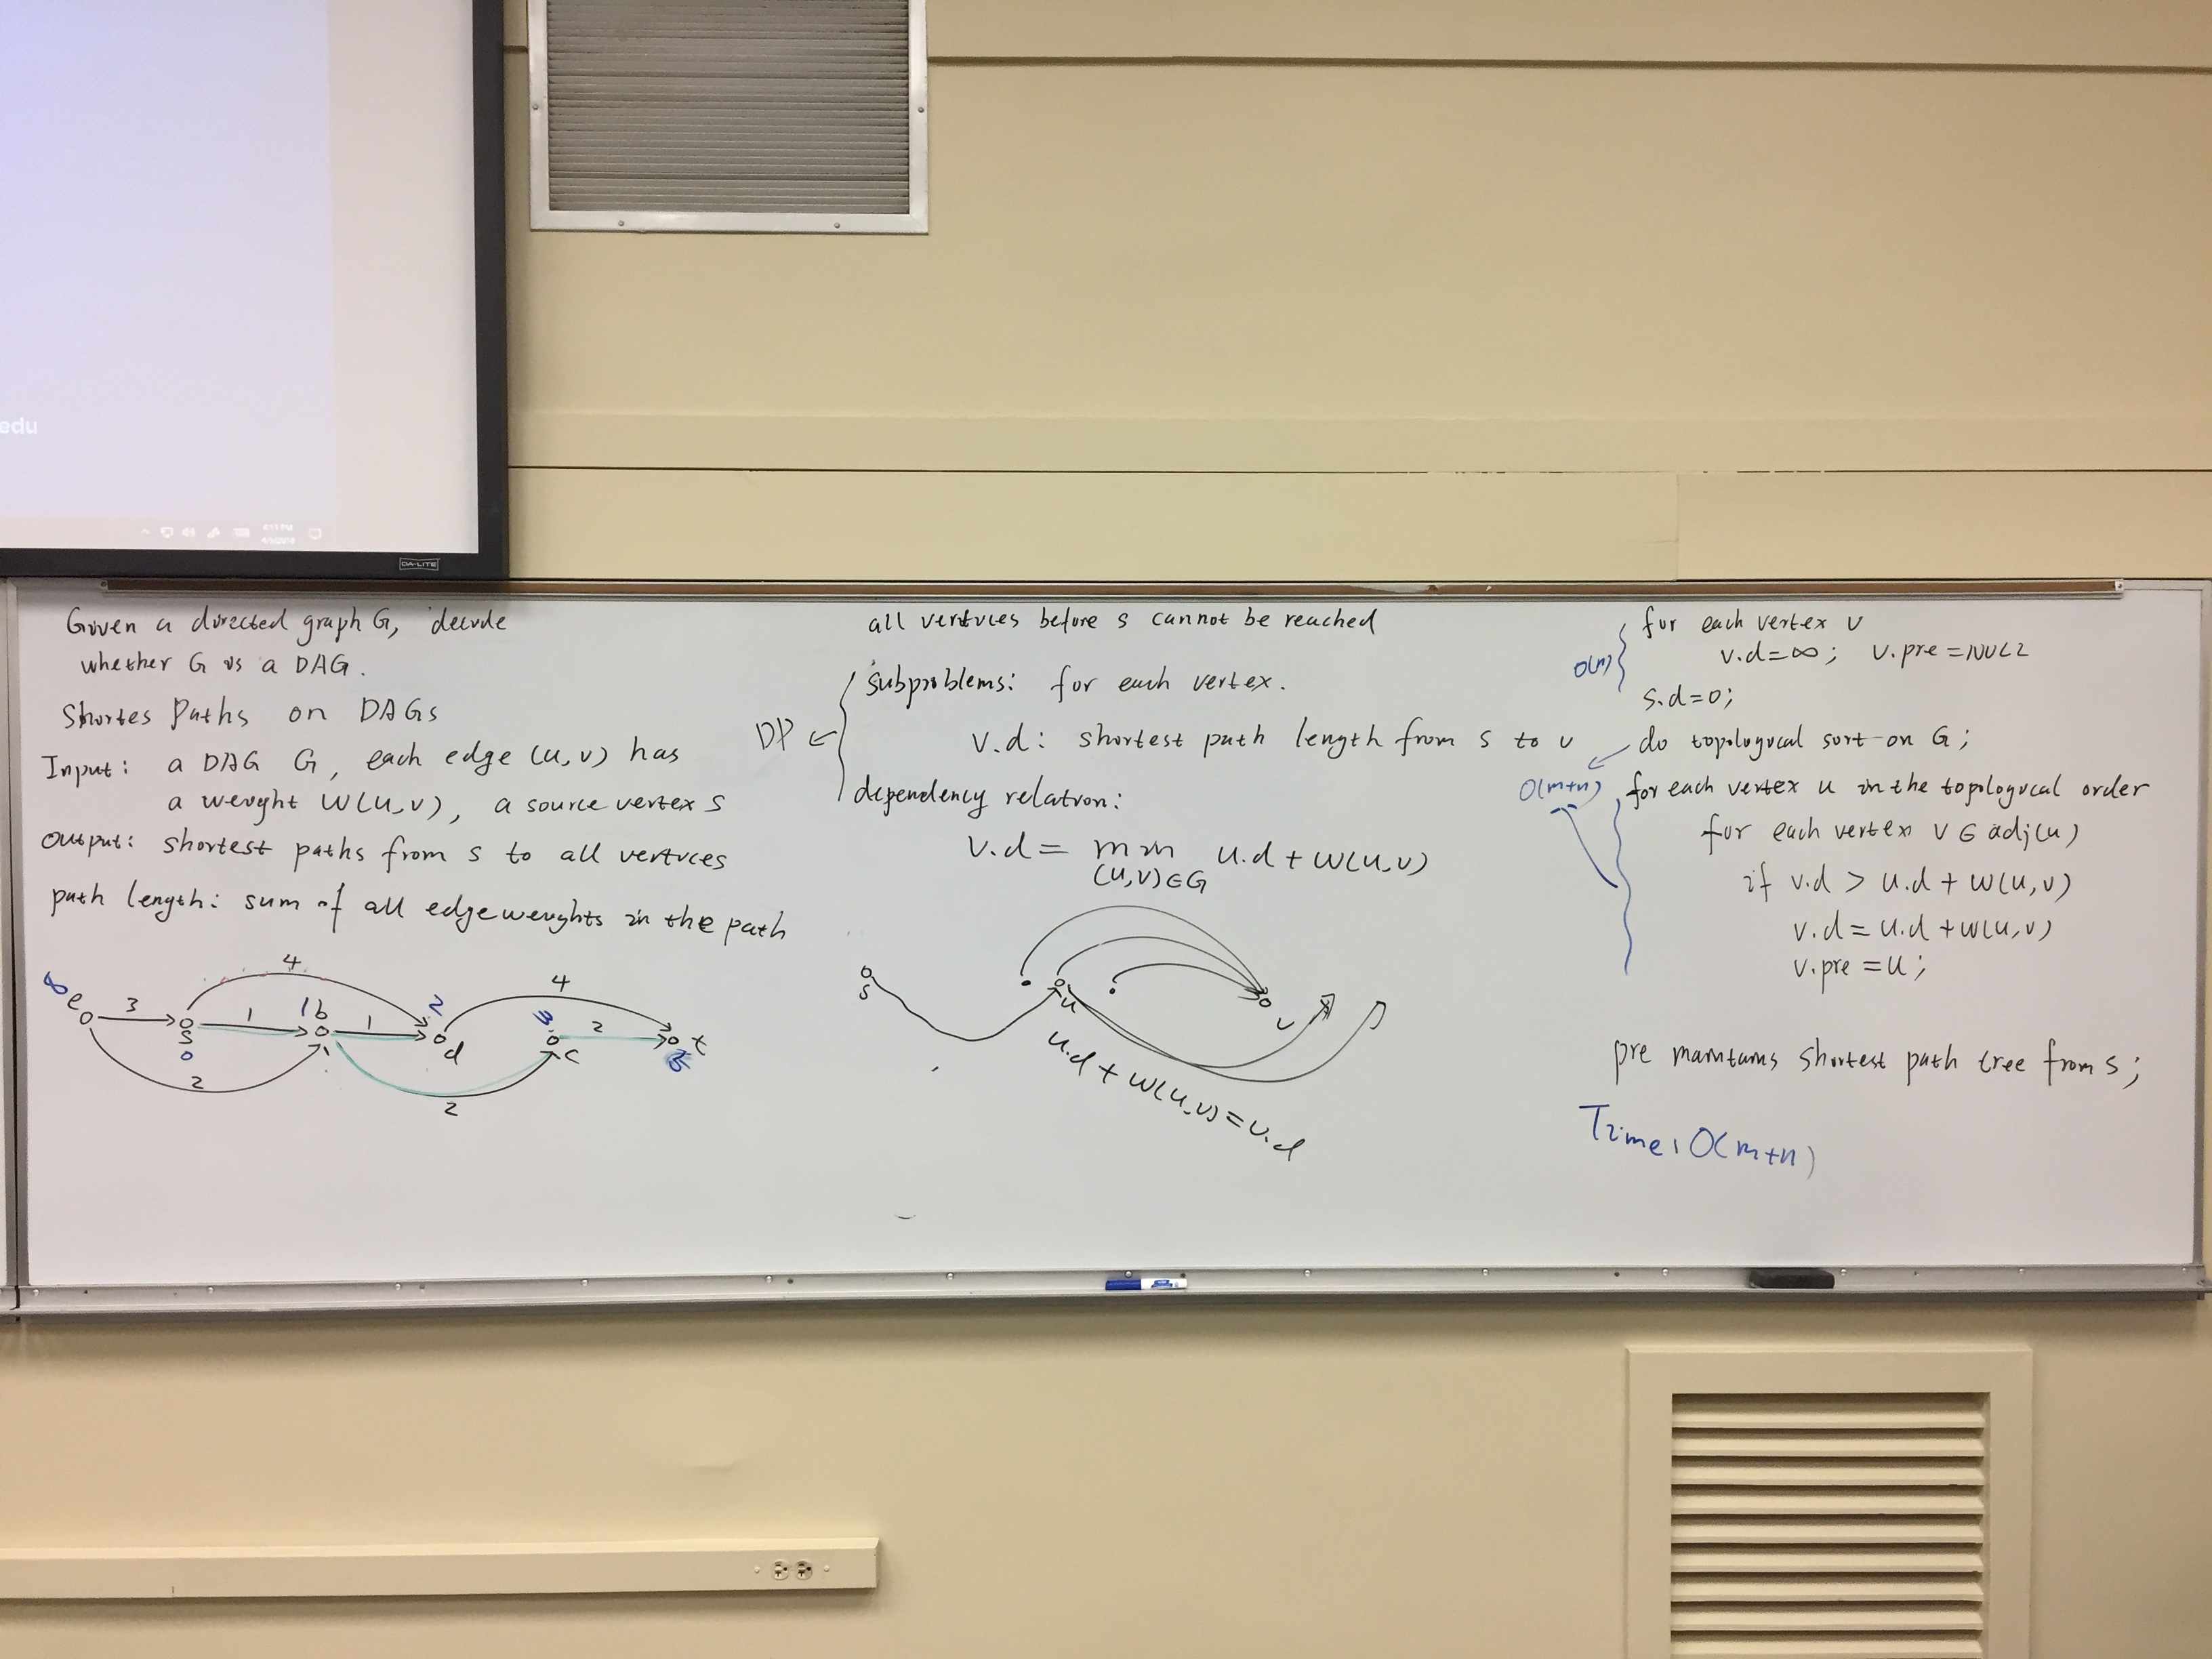 edu
DA-LITE
Given a directed graph G, decide
whether G is a DAG.
Shortes Paths on DAGs
Input: a DAG G, each edge (u,v) has
a weight w(u,v), a source vertex s
Output: shortest paths from s to all vertices
path length: sum of all edge weights in the path
4
4
∞ e 3 s 1 1 b 1 2 d 3 c 2 t
0
2
2
all vertices before s cannot be reached
DP ← subproblems: for each vertex.
v.d: shortest path length from s to v
dependency relation:
v.d = min u.d + w(u,v)
(u,v)∈G
s
u
v
u.d + w(u,v) = v.d
for each vertex v
O(n) v.d=∞; v.pre=NULL
s.d=0;
do topological sort on G;
O(m+n) for each vertex u in the topological order
for each vertex v ∈ adj(u)
if v.d > u.d + w(u,v)
v.d = u.d + w(u,v)
v.pre = u;
pre maintains shortest path tree from s;
Time: O(m+n)